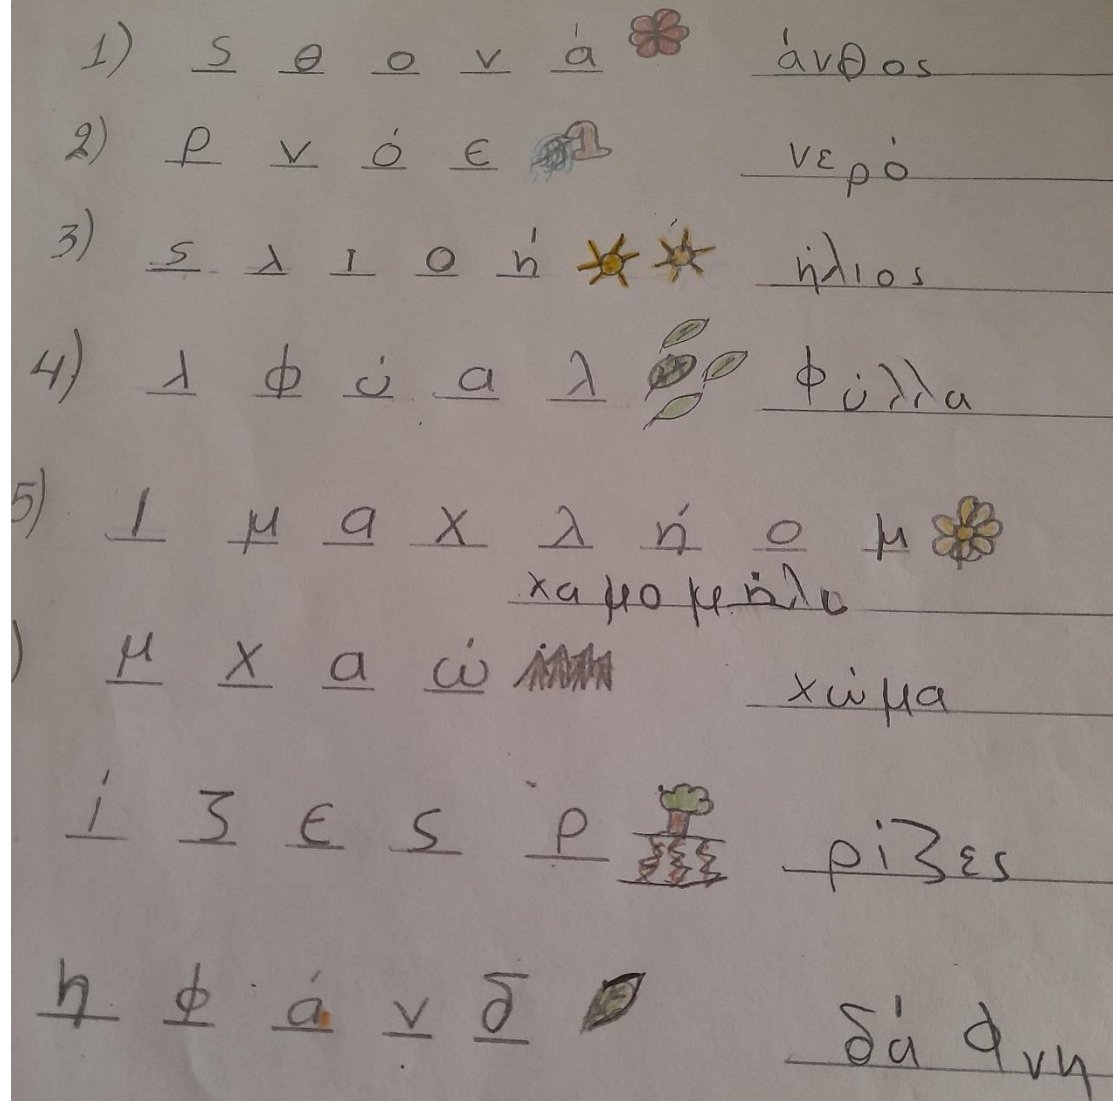 1) ς θ ο ν ά άνθος
2) ρ ν ό ε νερό
3) ς λ ι ο ή ήλιος
4) λ φ ύ α λ φύλλα
5) ι μ α χ λ ή ο μ
χαμομήλι
) μ χ α ώ χώμα
ί ζ ε ς ρ ρίζες
η φ ά ν δ δάφνη